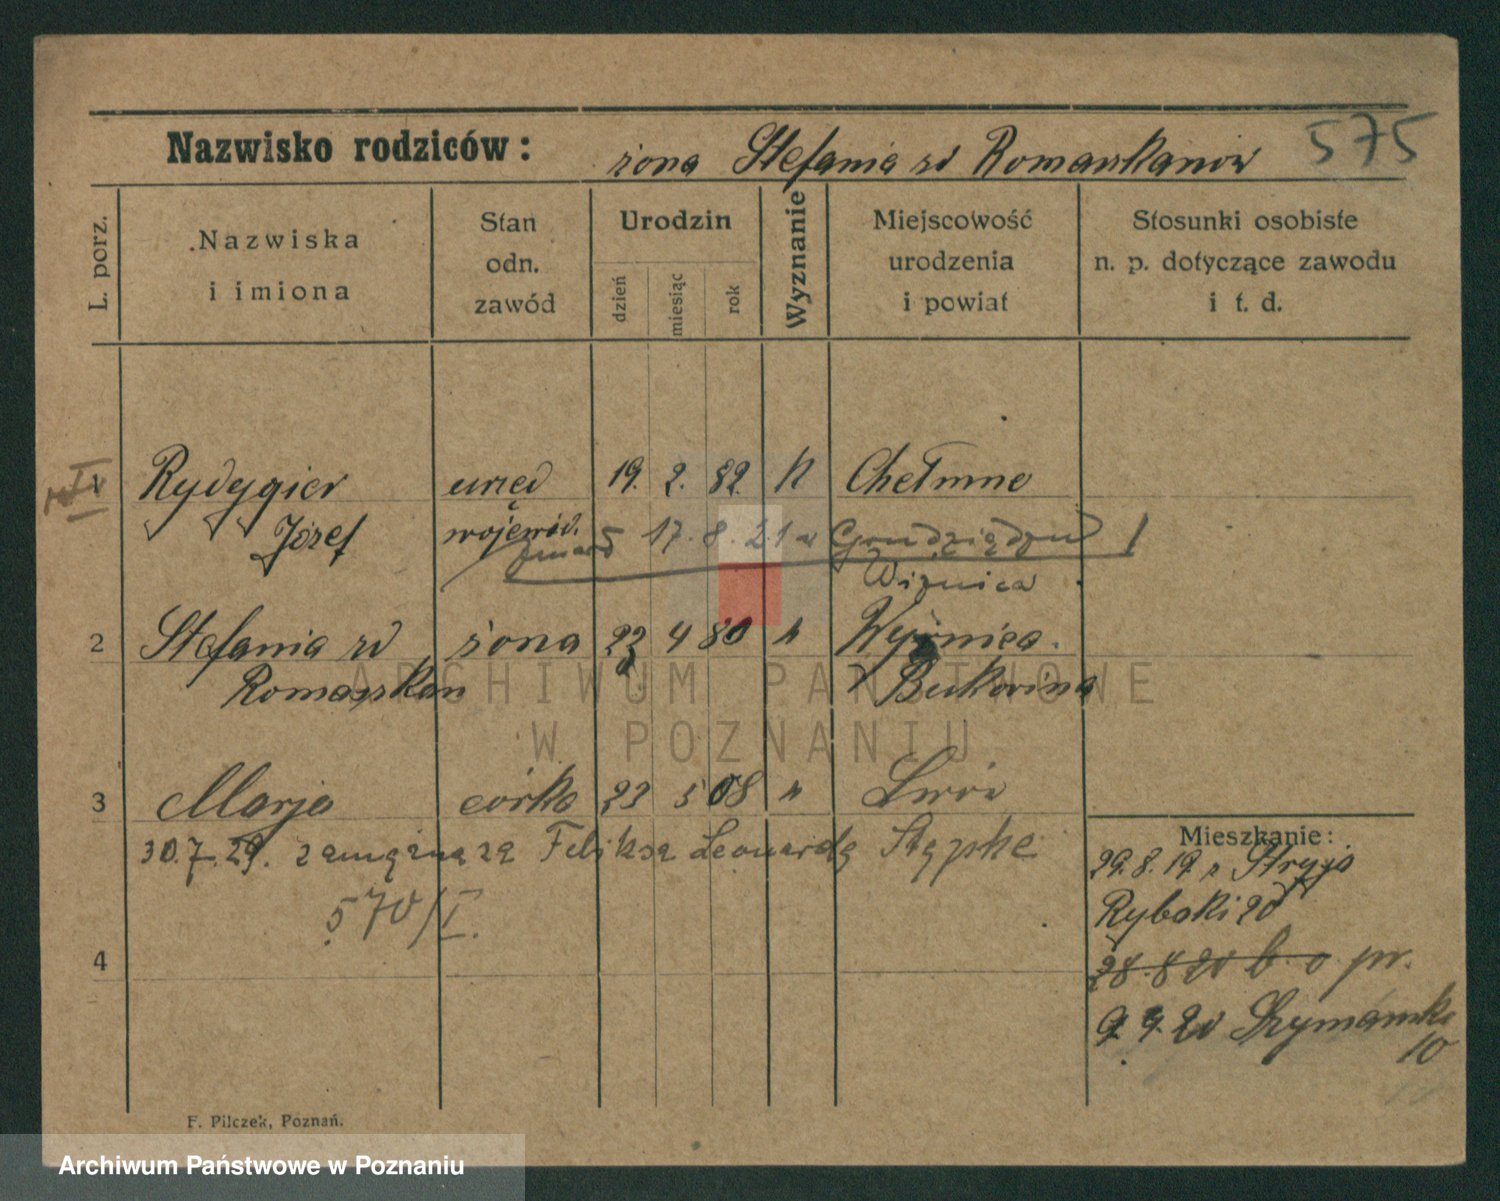 575
Nazwisko rodziców: żona Stefania zd Romaszkanów
L. porz.
Nazwiska i imiona
Stan odn. zawód
Urodzin
dzień
miesiąc
rok
Wyznanie
Miejscowość urodzenia i powiat
Stosunki osobiste n. p. dotyczące zawodu i t. d.
1 Rydygier urzęd 19. 2. 82. k Chełmno
Józef wojewód.
zmarł 17.8.21 w Grudziądzu
Wiżnica
2 Stefania zd żona 23 4 80 k Wyżnica
Romaszkan Bukowina
3 Marja córka 23 5 08 k Lwów
30.7.29. zamężna za Feliksa Leonarda Stępske
570/I.
4
Mieszkanie:
29.8.19 z Stryja
Rybaki 20
28.8.20 b o pr.
9.9.20 Szymański
10
F. Pilczek, Poznań.
ARCHIWUM PAŃSTWOWE
W POZNANIU
Archiwum Państwowe w Poznaniu